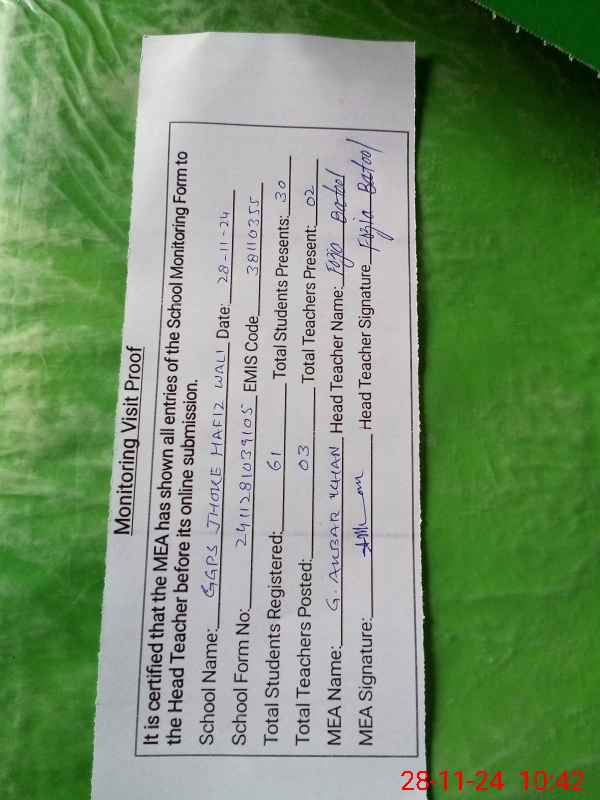 Monitoring Visit Proof
It is certified that the MEA has shown all entries of the School Monitoring Form to
the Head Teacher before its online submission.
School Name: GGPS JHOKE HAFIZ WALI Date: 28-11-24
School Form No: 2411281039105 EMIS Code 38110355
Total Students Registered: 61 Total Students Presents: 30
Total Teachers Posted: 03 Total Teachers Present: 02
MEA Name: G. AKBAR KHAN Head Teacher Name: Fozia Batool
MEA Signature: Head Teacher Signature Fozia Batool
28-11-24 10:42